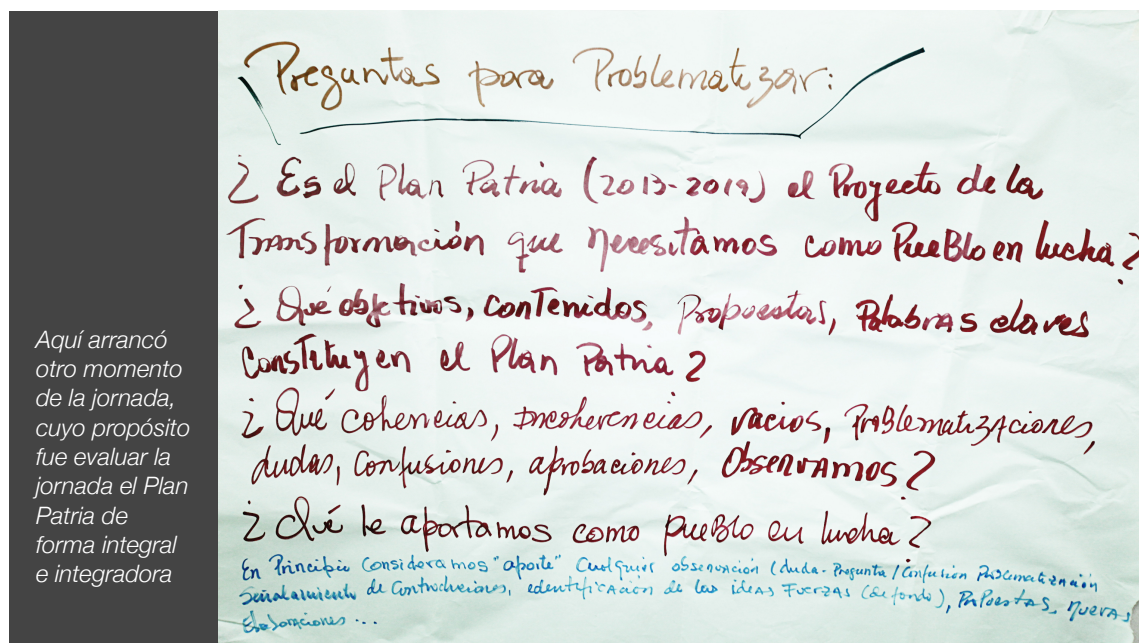 Aquí arrancó
otro momento
de la jornada,
cuyo propósito
fue evaluar la
jornada el Plan
Patria de
forma integral
e integradora
Preguntas para Problematizar:
¿ Es el Plan Patria (2013-2019) el Proyecto de la
Transformación que necesitamos como PueBlo en lucha?
¿ Qué objetivos, contenidos, Propuestas, Palabras claves
Constituyen el Plan Patria?
¿ Qué cohencias, Incoherencias, vacios, ProBlematizAciones,
dudas, Confusiones, aprobaciones, ObservAmos?
¿ Qué le aportamos como pueBlo en lucha?
En Principio Consideramos "aporte" Cualquier observación (duda-Pregunta/Confusión Problematización
Señalamiento de Contradicciones, identificAción de las ideas Fuerzas (de fondo), PRoPuestas, NuevAs
Elaboraciones...